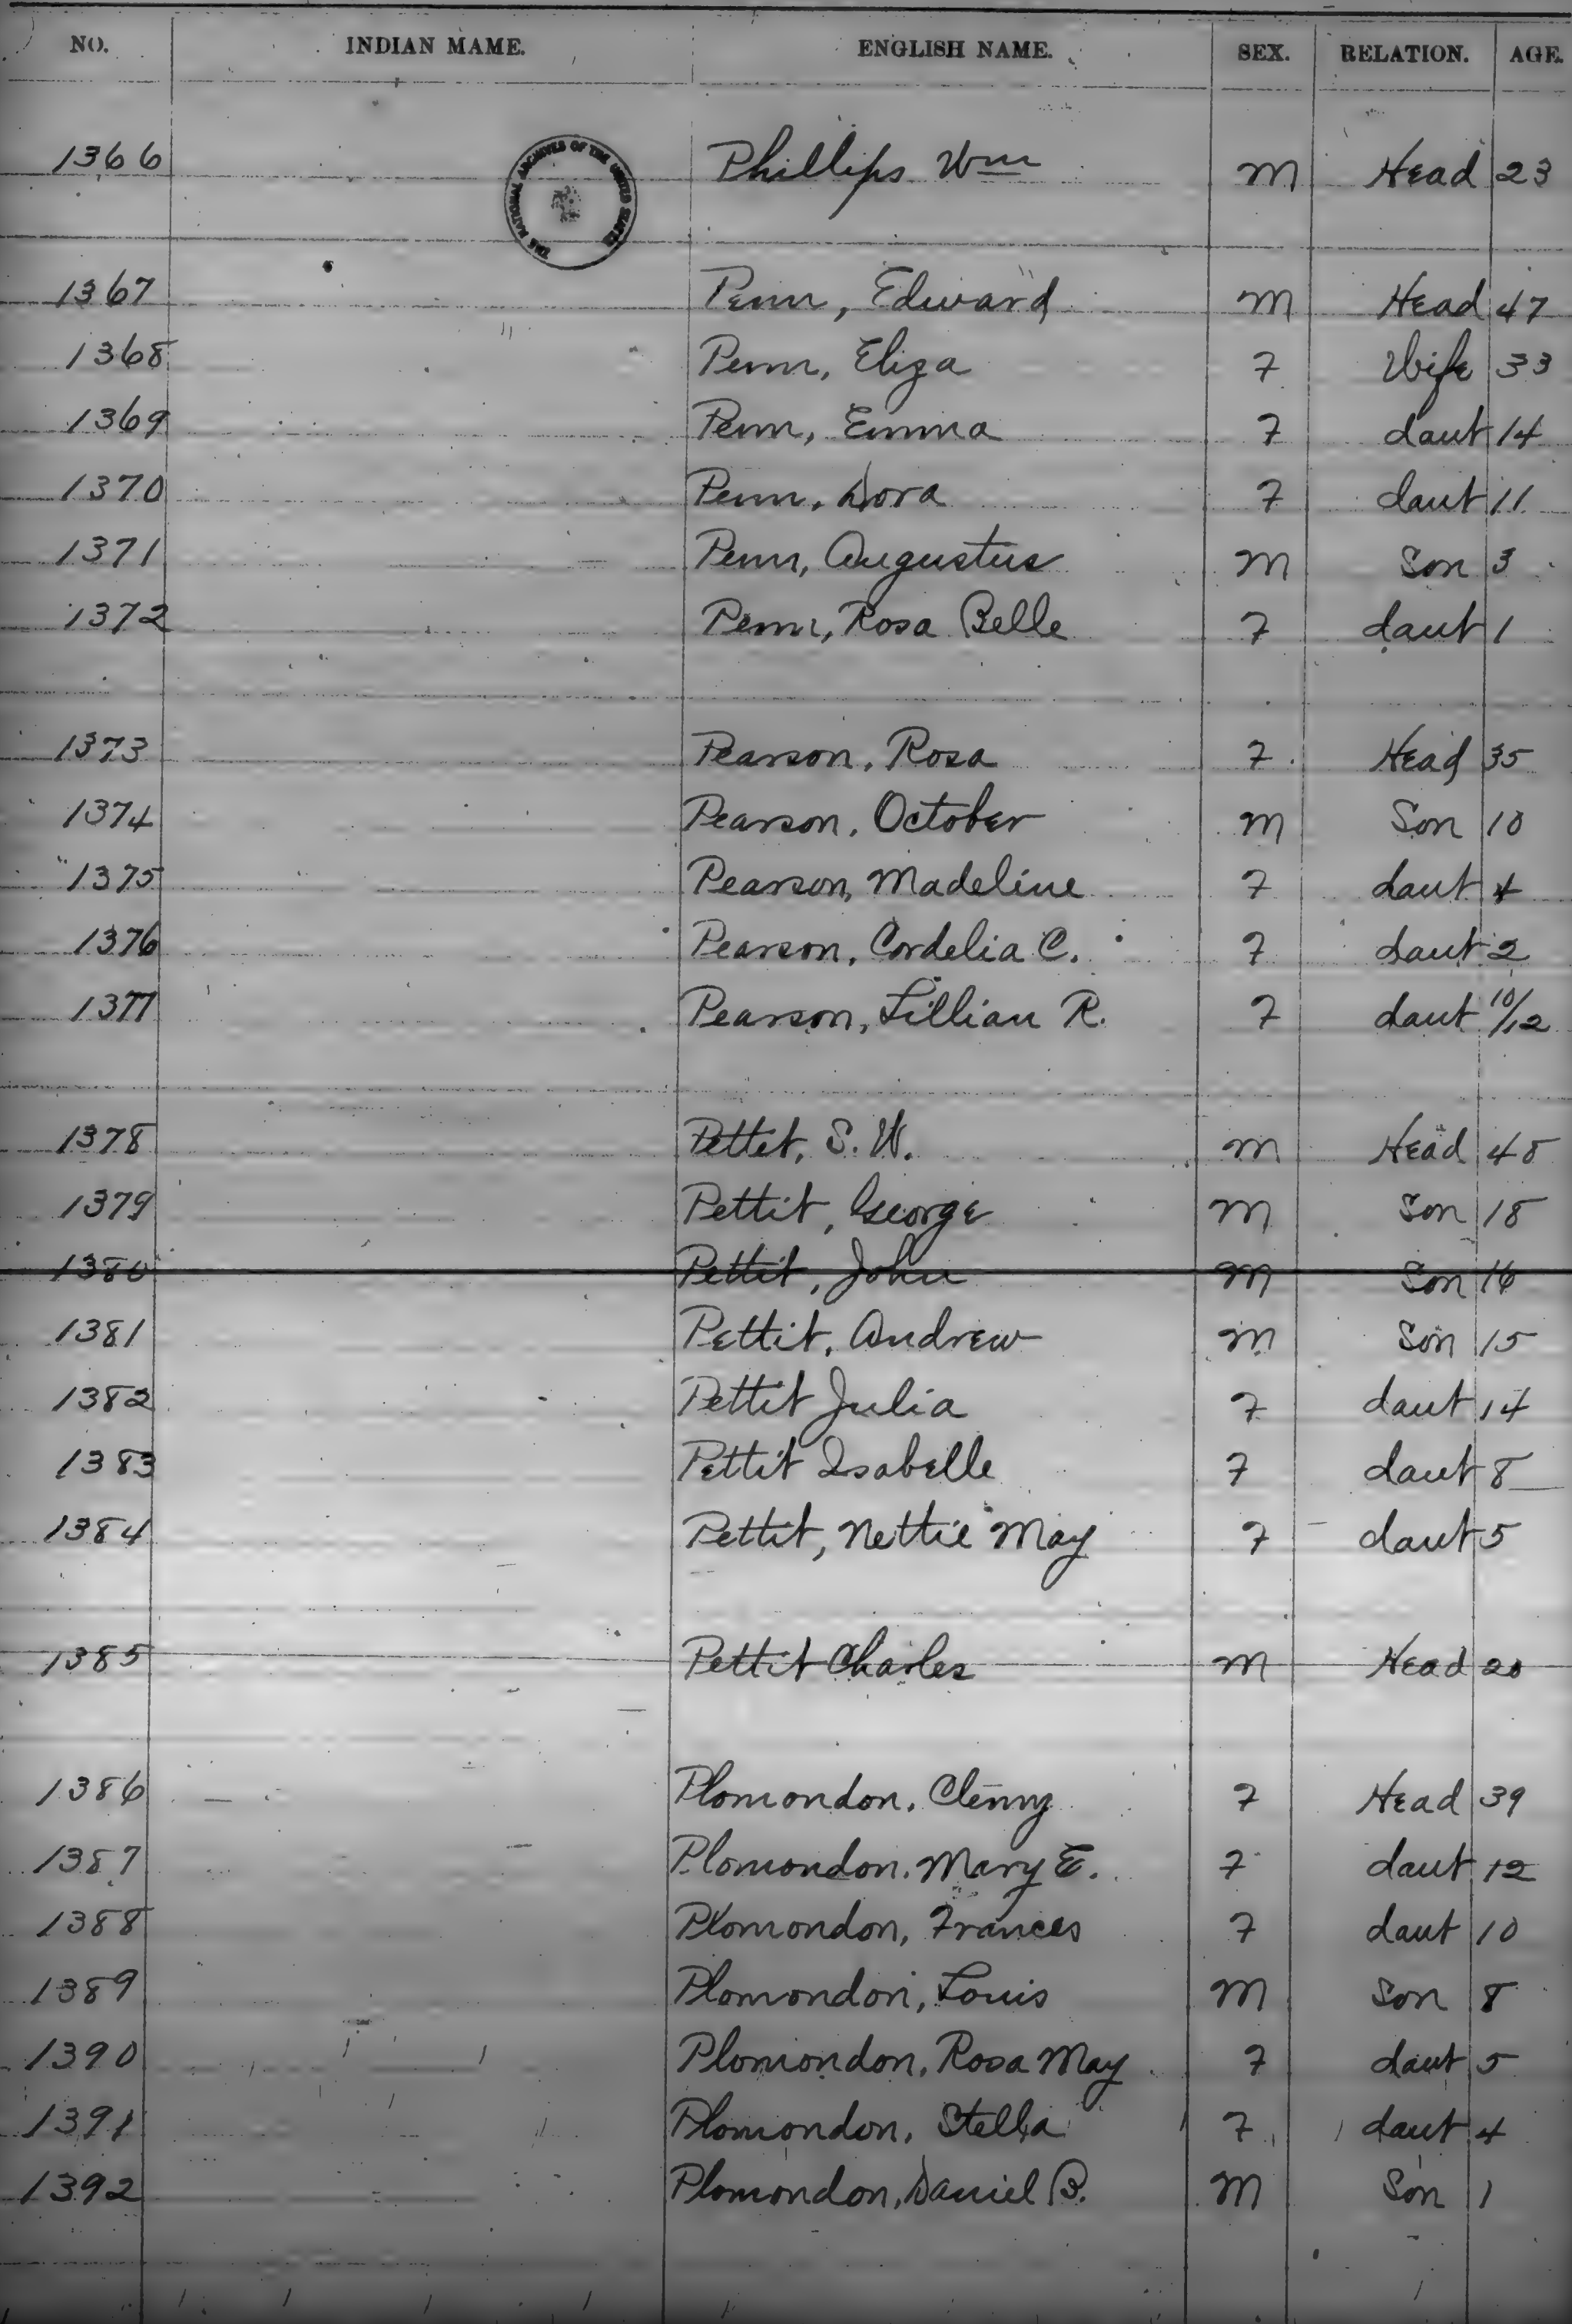 NO. INDIAN MAME. ENGLISH NAME. SEX. RELATION. AGE.
THE NATIONAL ARCHIVES OF THE UNITED STATES
1366 Phillips Wm M Head 23
1367 Penn, Edward M Head 47
1368 Penn, Eliza F Wife 33
1369 Penn, Emma F daut 14
1370 Penn, Dora F daut 11
1371 Penn, Augustus M Son 3
1372 Penn, Rosa Belle F daut 1
1373 Pearson, Rosa F Head 35
1374 Pearson, October M Son 10
1375 Pearson, Madeline F daut 4
1376 Pearson, Cordelia C. F daut 2
1377 Pearson, Lillian R. F daut 10/12
1378 Pettit, S. W. M Head 48
1379 Pettit, George M Son 18
1380 Pettit, John M Son 16
1381 Pettit, Andrew M Son 15
1382 Pettit Julia F daut 14
1383 Pettit Isabelle F daut 8
1384 Pettit, Nettie May F daut 5
1385 Pettit Charles M Head 20
1386 Plomondon, Clenny F Head 39
1387 Plomondon, Mary E. F daut 12
1388 Plomondon, Frances F daut 10
1389 Plomondon, Louis M Son 8
1390 Plomondon, Rosa May F daut 5
1391 Plomondon, Stella F daut 4
1392 Plomondon, Daniel B. M Son 1